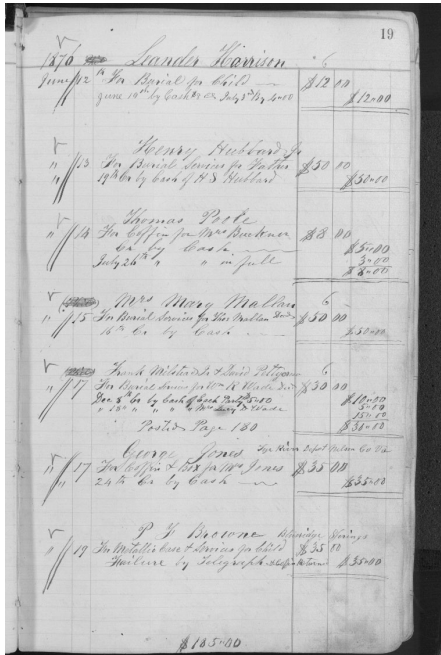 19
1876 Leander Harrison 6
June 12th For Burial for Child $12 00
June 19th by Cash Cr July 3rd By 4.00 $12.00
Henry Hubbard Jr
" 13 For Burial Services for Father $50 00
19th Cr by Cash of H S Hubbard $50.00
Thomas Poole
" 14 For Coffin for Mrs $8 00
Cr by Cash $5.00
July 26th " " in full 3.00
$8.00
Mrs Mary Mallan 6
" 15 For Burial Services for Thos Mallan Decd $50 00
16th Cr by Cash $50.00
Frank & David 6
" 17 For Burial Services for Wm R Wade Decd $30 00
Dec 8th Cr by Cash of Each Party 5.00 $10.00
5.00
" 18th " " " " Mrs Wade 15.00
Posted Page 180 $30.00
George Jones Tye River Depot Nelson Co Va
" 17 For Coffin & Box for Mrs Jones $35 00
24th Cr by Cash $35.00
P F Browne Springs
" 19 For Metallic Case & Services for Child $35 00
Failure by Telegraph & Coffin Returned $35.00
$185.00